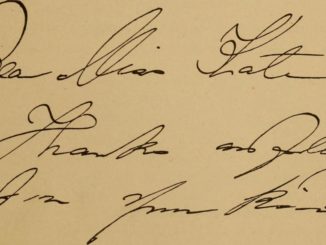 Dear Miss Kate
Thanks
for your kind